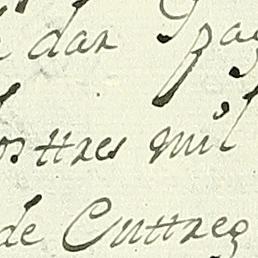 dar pag
osttres mil
de Cuttreg